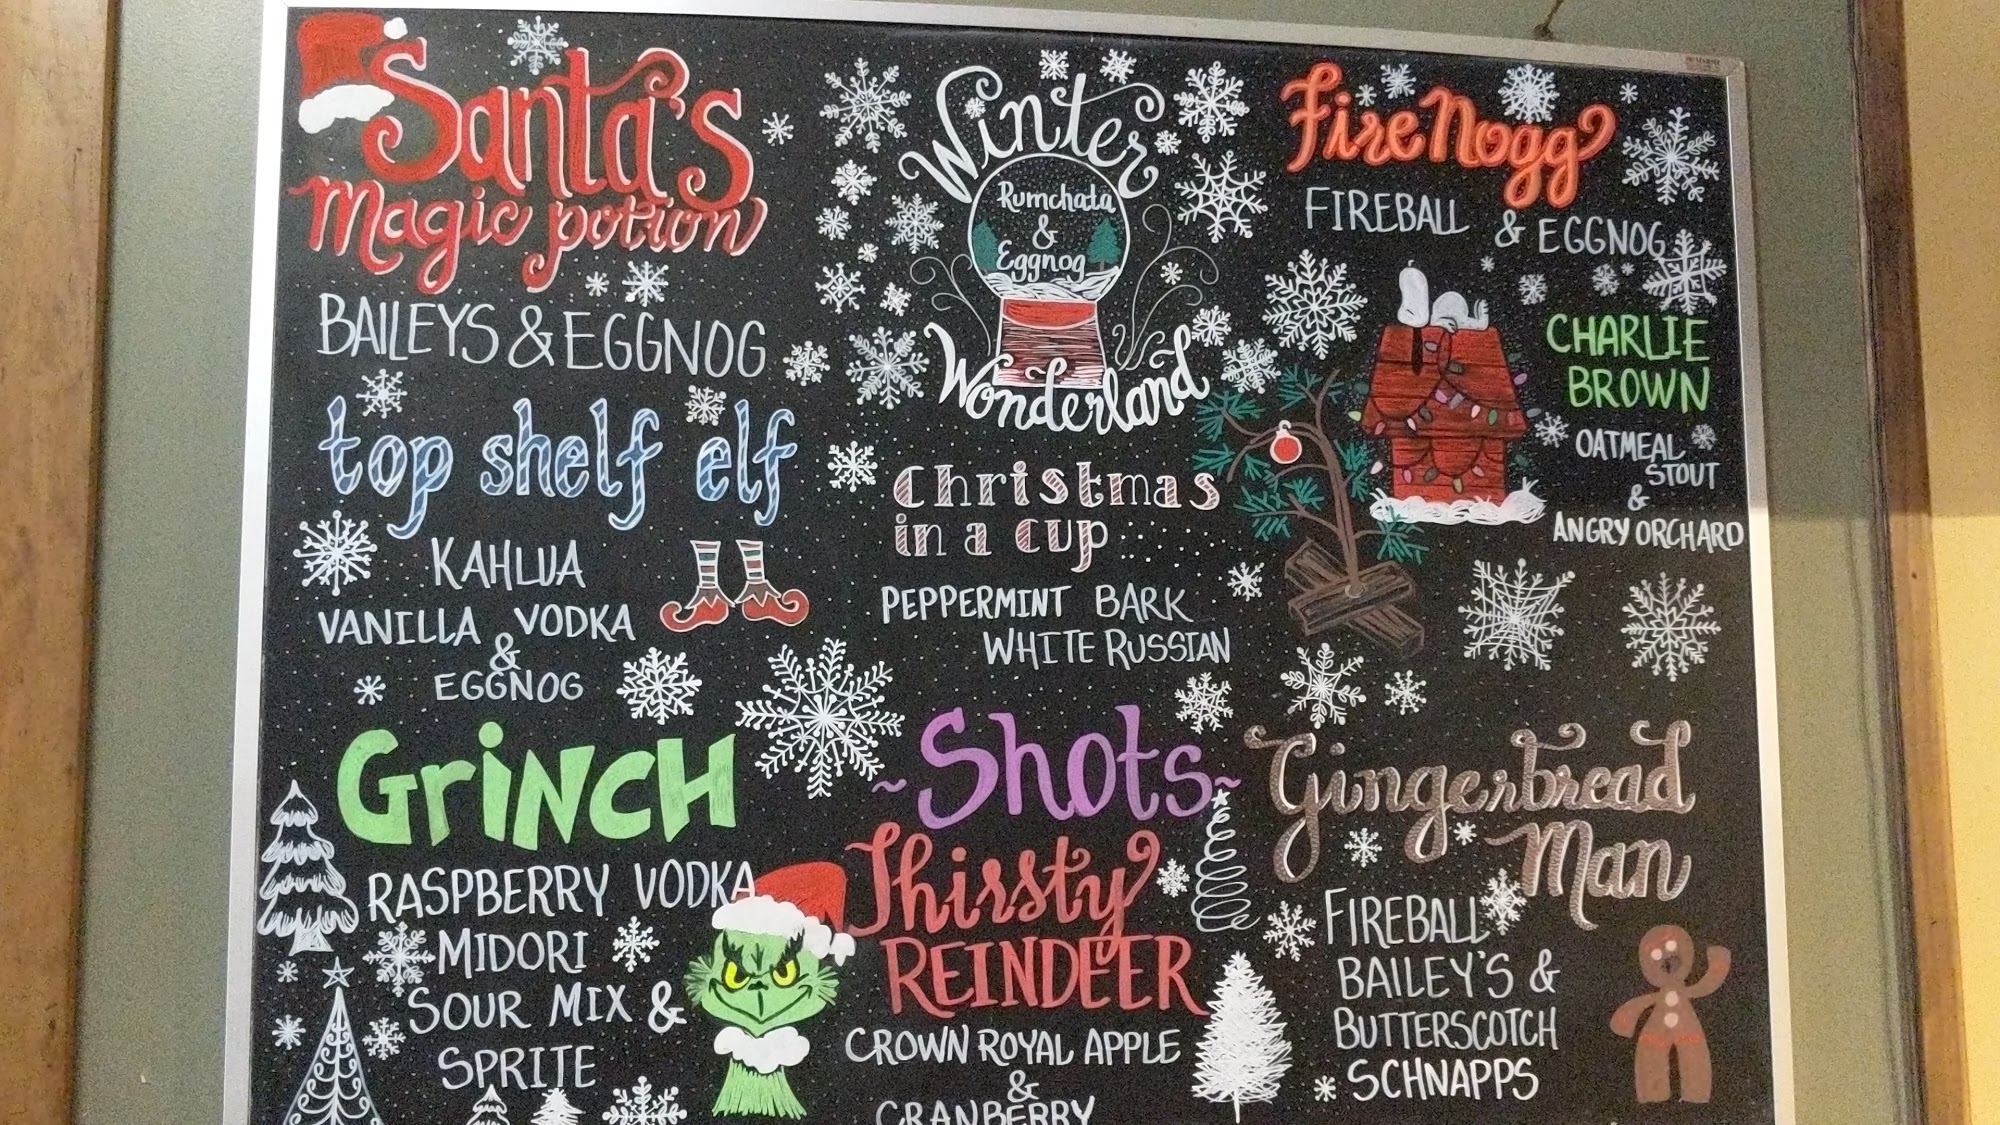 Santa's
Magic potion
BAILEYS & EGGNOG
top shelf elf
KAHLUA
VANILLA VODKA
&
EGGNOG
GRiNCH
RASPBERRY VODKA
MIDORI
SOUR MIX &
SPRITE
Winter
Rumchata
&
Eggnog
Wonderland
Christmas
in a cup
PEPPERMINT BARK
WHITE RUSSIAN
~Shots~
Thirsty
REINDEER
CROWN ROYAL APPLE
&
CRANBERRY
Fire Nogg
FIREBALL & EGGNOG
CHARLIE
BROWN
OATMEAL
STOUT
&
ANGRY ORCHARD
Gingerbread
Man
FIREBALL
BAILEY'S &
BUTTERSCOTCH
SCHNAPPS